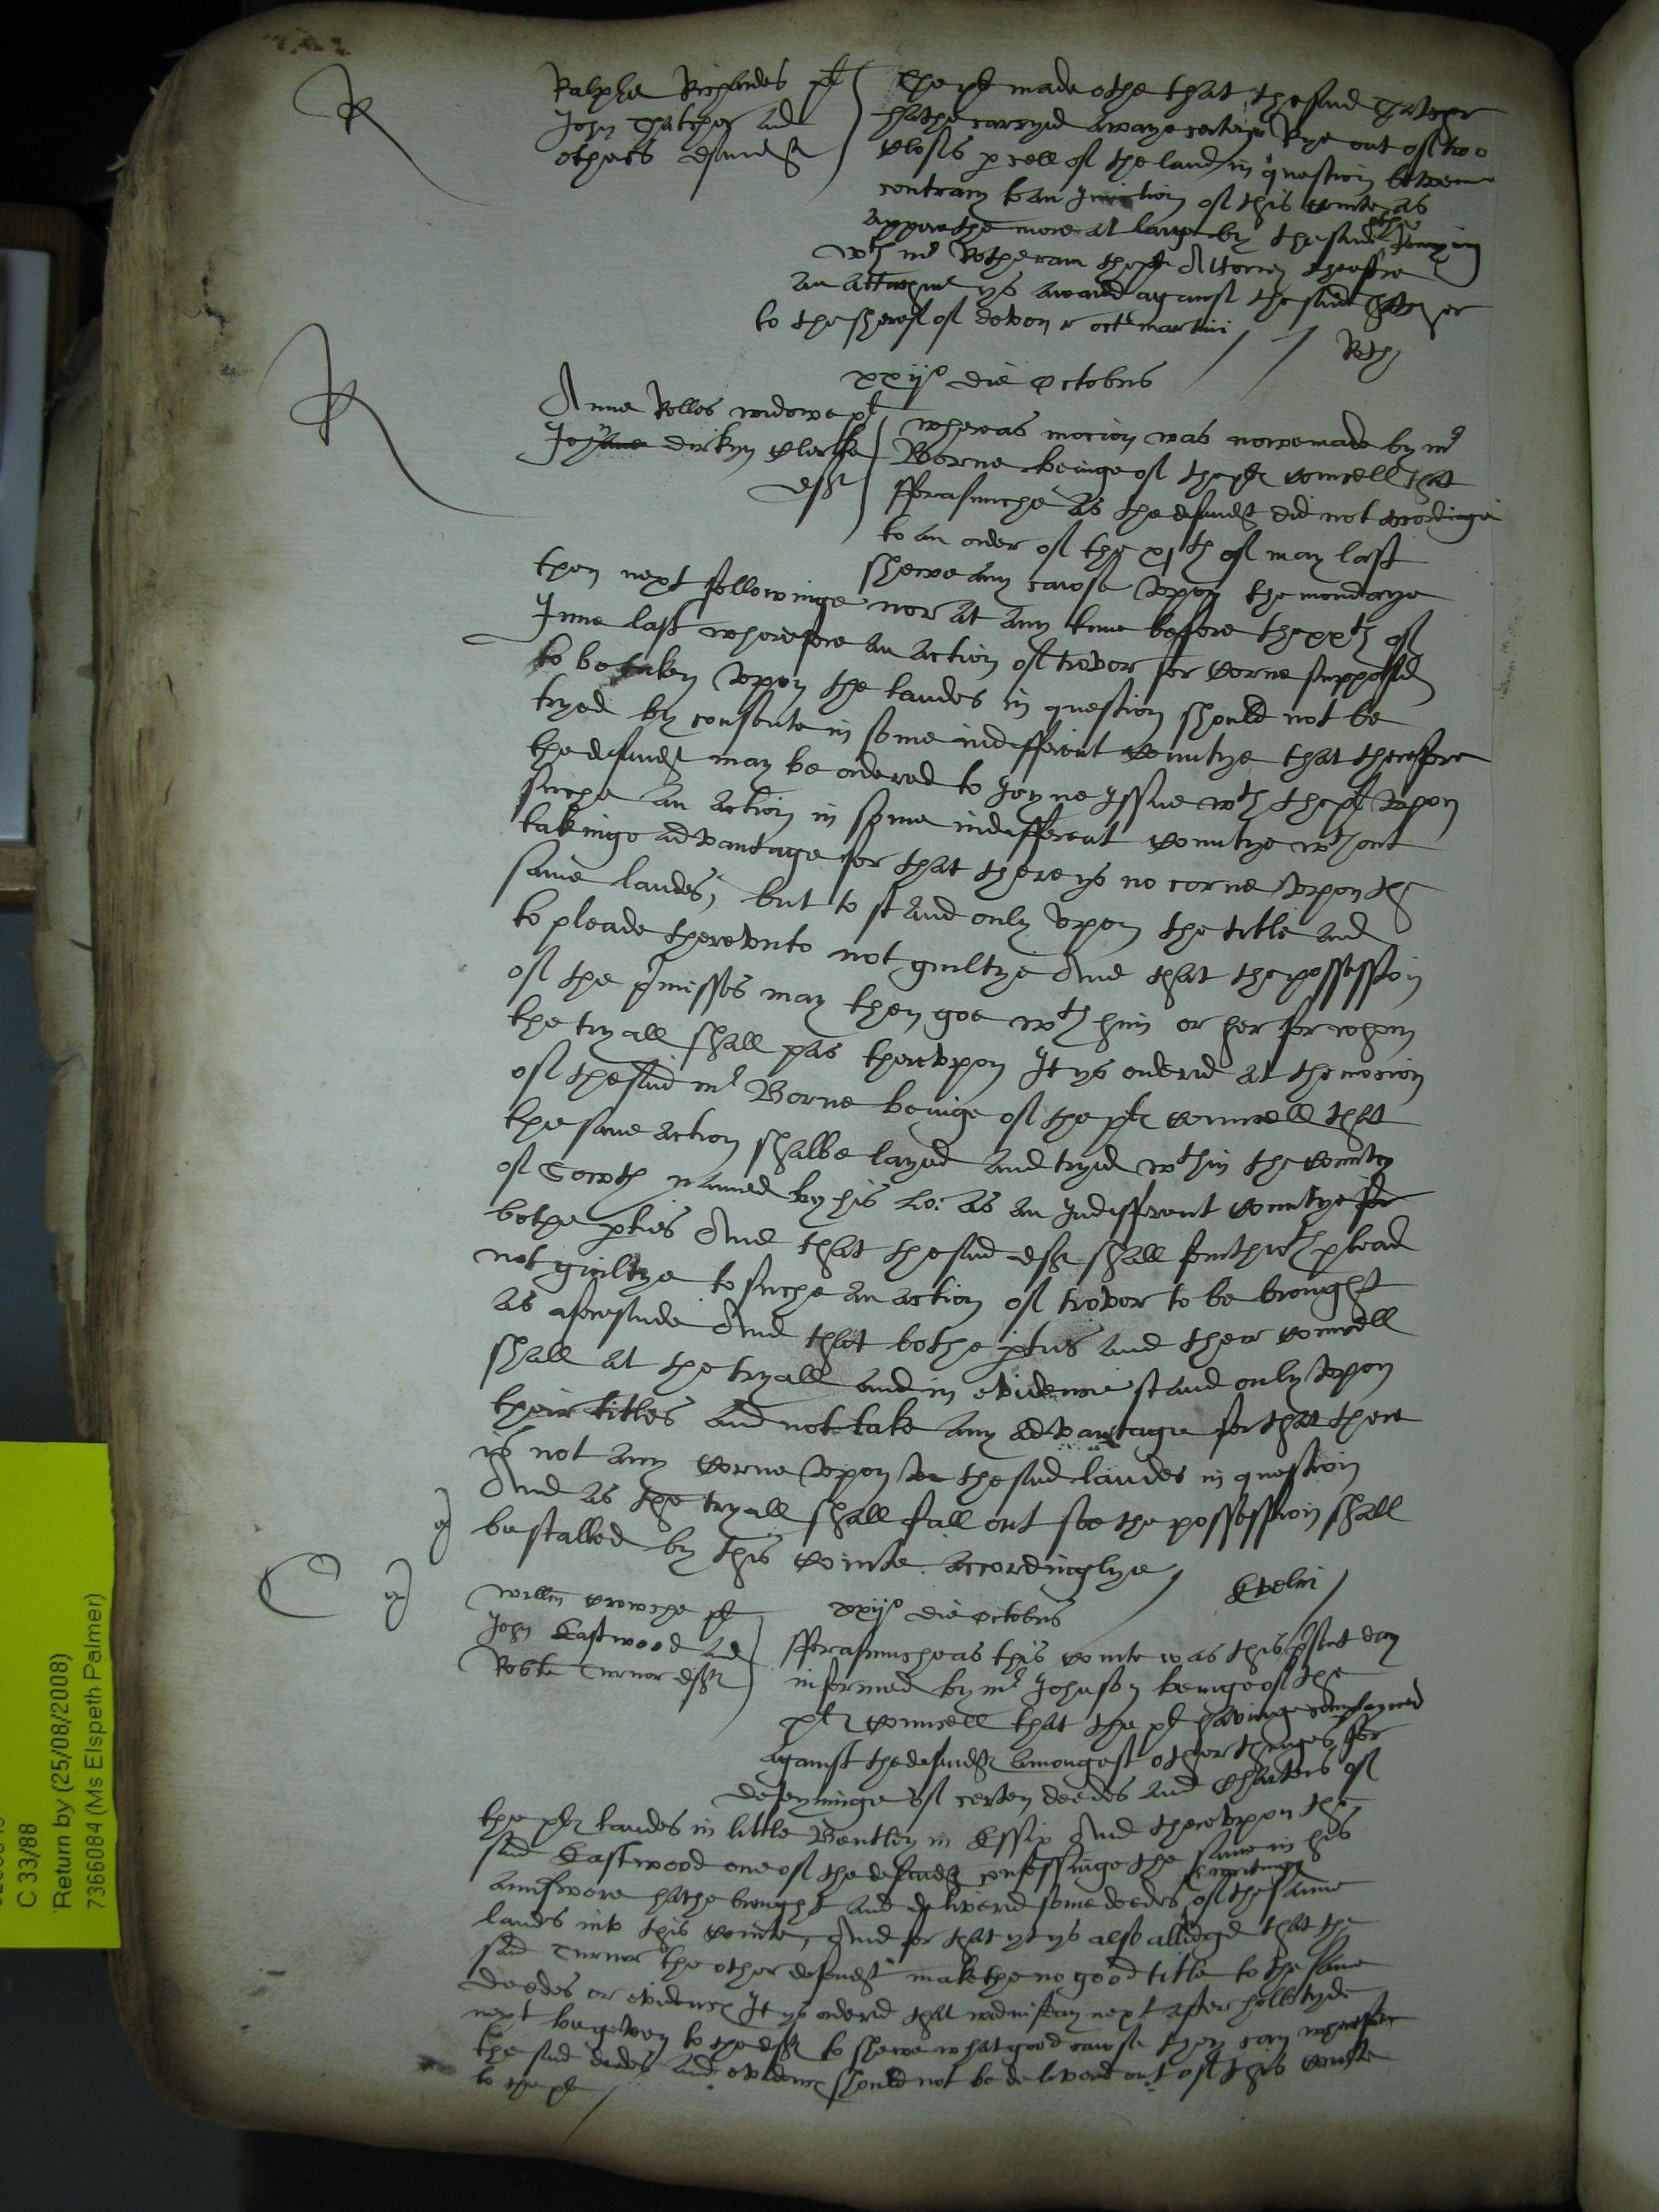 R
Ralphe Richardes pl
John Thatcher and
others defendtes
The pl made othe that the said Thatcher
hathe carryed awaye certeyn Rye out of two
closes p cell of the landes in question betwene
contrary to an Iniunction of this courte as
apperethe more at large by the said
wth mr Rotheram the pl Attorney therefore
an attachmt ys awarded against the said Thatcher
to the shereff of devon r oct martini
Roth
xxijo die Octobris
R
Anne Rolles widowe pl
John dirkyn clerke
deft
whereas mocion was nowe made by mr
Borne beinge of the pltes councell that
fforasmuche as the defendt did not accordinge
to an order of the xjth of may last
shewe any cawse vpon the mondaye
then next followinge nor at any time before the xxth of
June last wherefore an action of trover for corne supposed
to be taken vpon the landes in question should not be
tryed by consente in some indifferent countye that therefore
the defendt may be ordered to Joyne Issue wth the pl vpon
suche an action in some indifferent countye wthout
takinge advantage for that there ys no corne vpon the
same landes, but to stand only vpon the title and
to pleade therevnto not guiltye And that the possession
of the pmisses may then goe wth him or her for whom
the tryall shall pas therevpon It ys ordered at the mocion
of the said mr Borne beinge of the pltes councell that
the same action shalbe layed and tryed wthin the countie
of South named by his Lo: as an Indifferent countye for
bothe pties And that the said deft shall forthwth plead
not guiltye to suche an action of trover to be brought
as aforesaide And that bothe pties and their councell
shall at the tryall and in evidence stand only vpon
their titles and not take any advantage for that there
is not any corne vpon the said landes in question
And as the tryall shall fall out soe the possession shall
be stalled by this courte accordinglye
Evelin
C
xxijo die Octobris
Willm Crowche pl
John Eastwood and
Robte Turnor deftes
fforasmuche as this courte was this psent day
informed by mr Johnson beinge of the
pltes councell that the pl havinge complayned
against the defendtes amongest other thinges for
deteyninge of certen deedes and Charters of
the pltes landes in little Bentley in Essex And therevpon the
said Eastwood one of the defendtes confessinge the same in his
& writinges
aunswere hathe brought and delivered some deedes of the same
landes into this courte, And for that yt ys also alledged that the
said Turnor the other defendt makethe no good title to the same
deedes or evidences It ys ordered that wednisday next after hollotyde
next be geven to the deftes to shewe what good cawse they can wherefore
the said deedes and evidences should not be delivered out of this courte
to the pl
C 33/88
Return by (25/08/2008)
7366084 (Ms Elspeth Palmer)